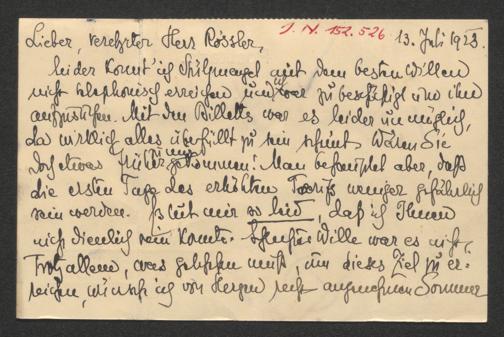 J. N. 152.526
13. Juli 1923.
Lieber, verehrter Herr Rössler,
leider konnt' ich mit dem besten Willen
nicht telephonisch erreichen und war zu beschäftigt um ihn
aufzusuchen. Mit den Billetts war es leider unmöglich,
da wirklich alles überfüllt zu sein scheint. Wären Sie
doch etwas früher gekommen! Man behauptet aber, daß
die ersten Tage des erhöhten Tarifs weniger gefährlich
sein werden. Es tut mir so leid, daß ich Ihnen
nicht dienlich sein konnte. Wille war es nicht,
Trotz allem, was geschehen muß, um dieses Ziel zu er-
reichen, wünsch ich von Herzen recht angenehmen Sommer